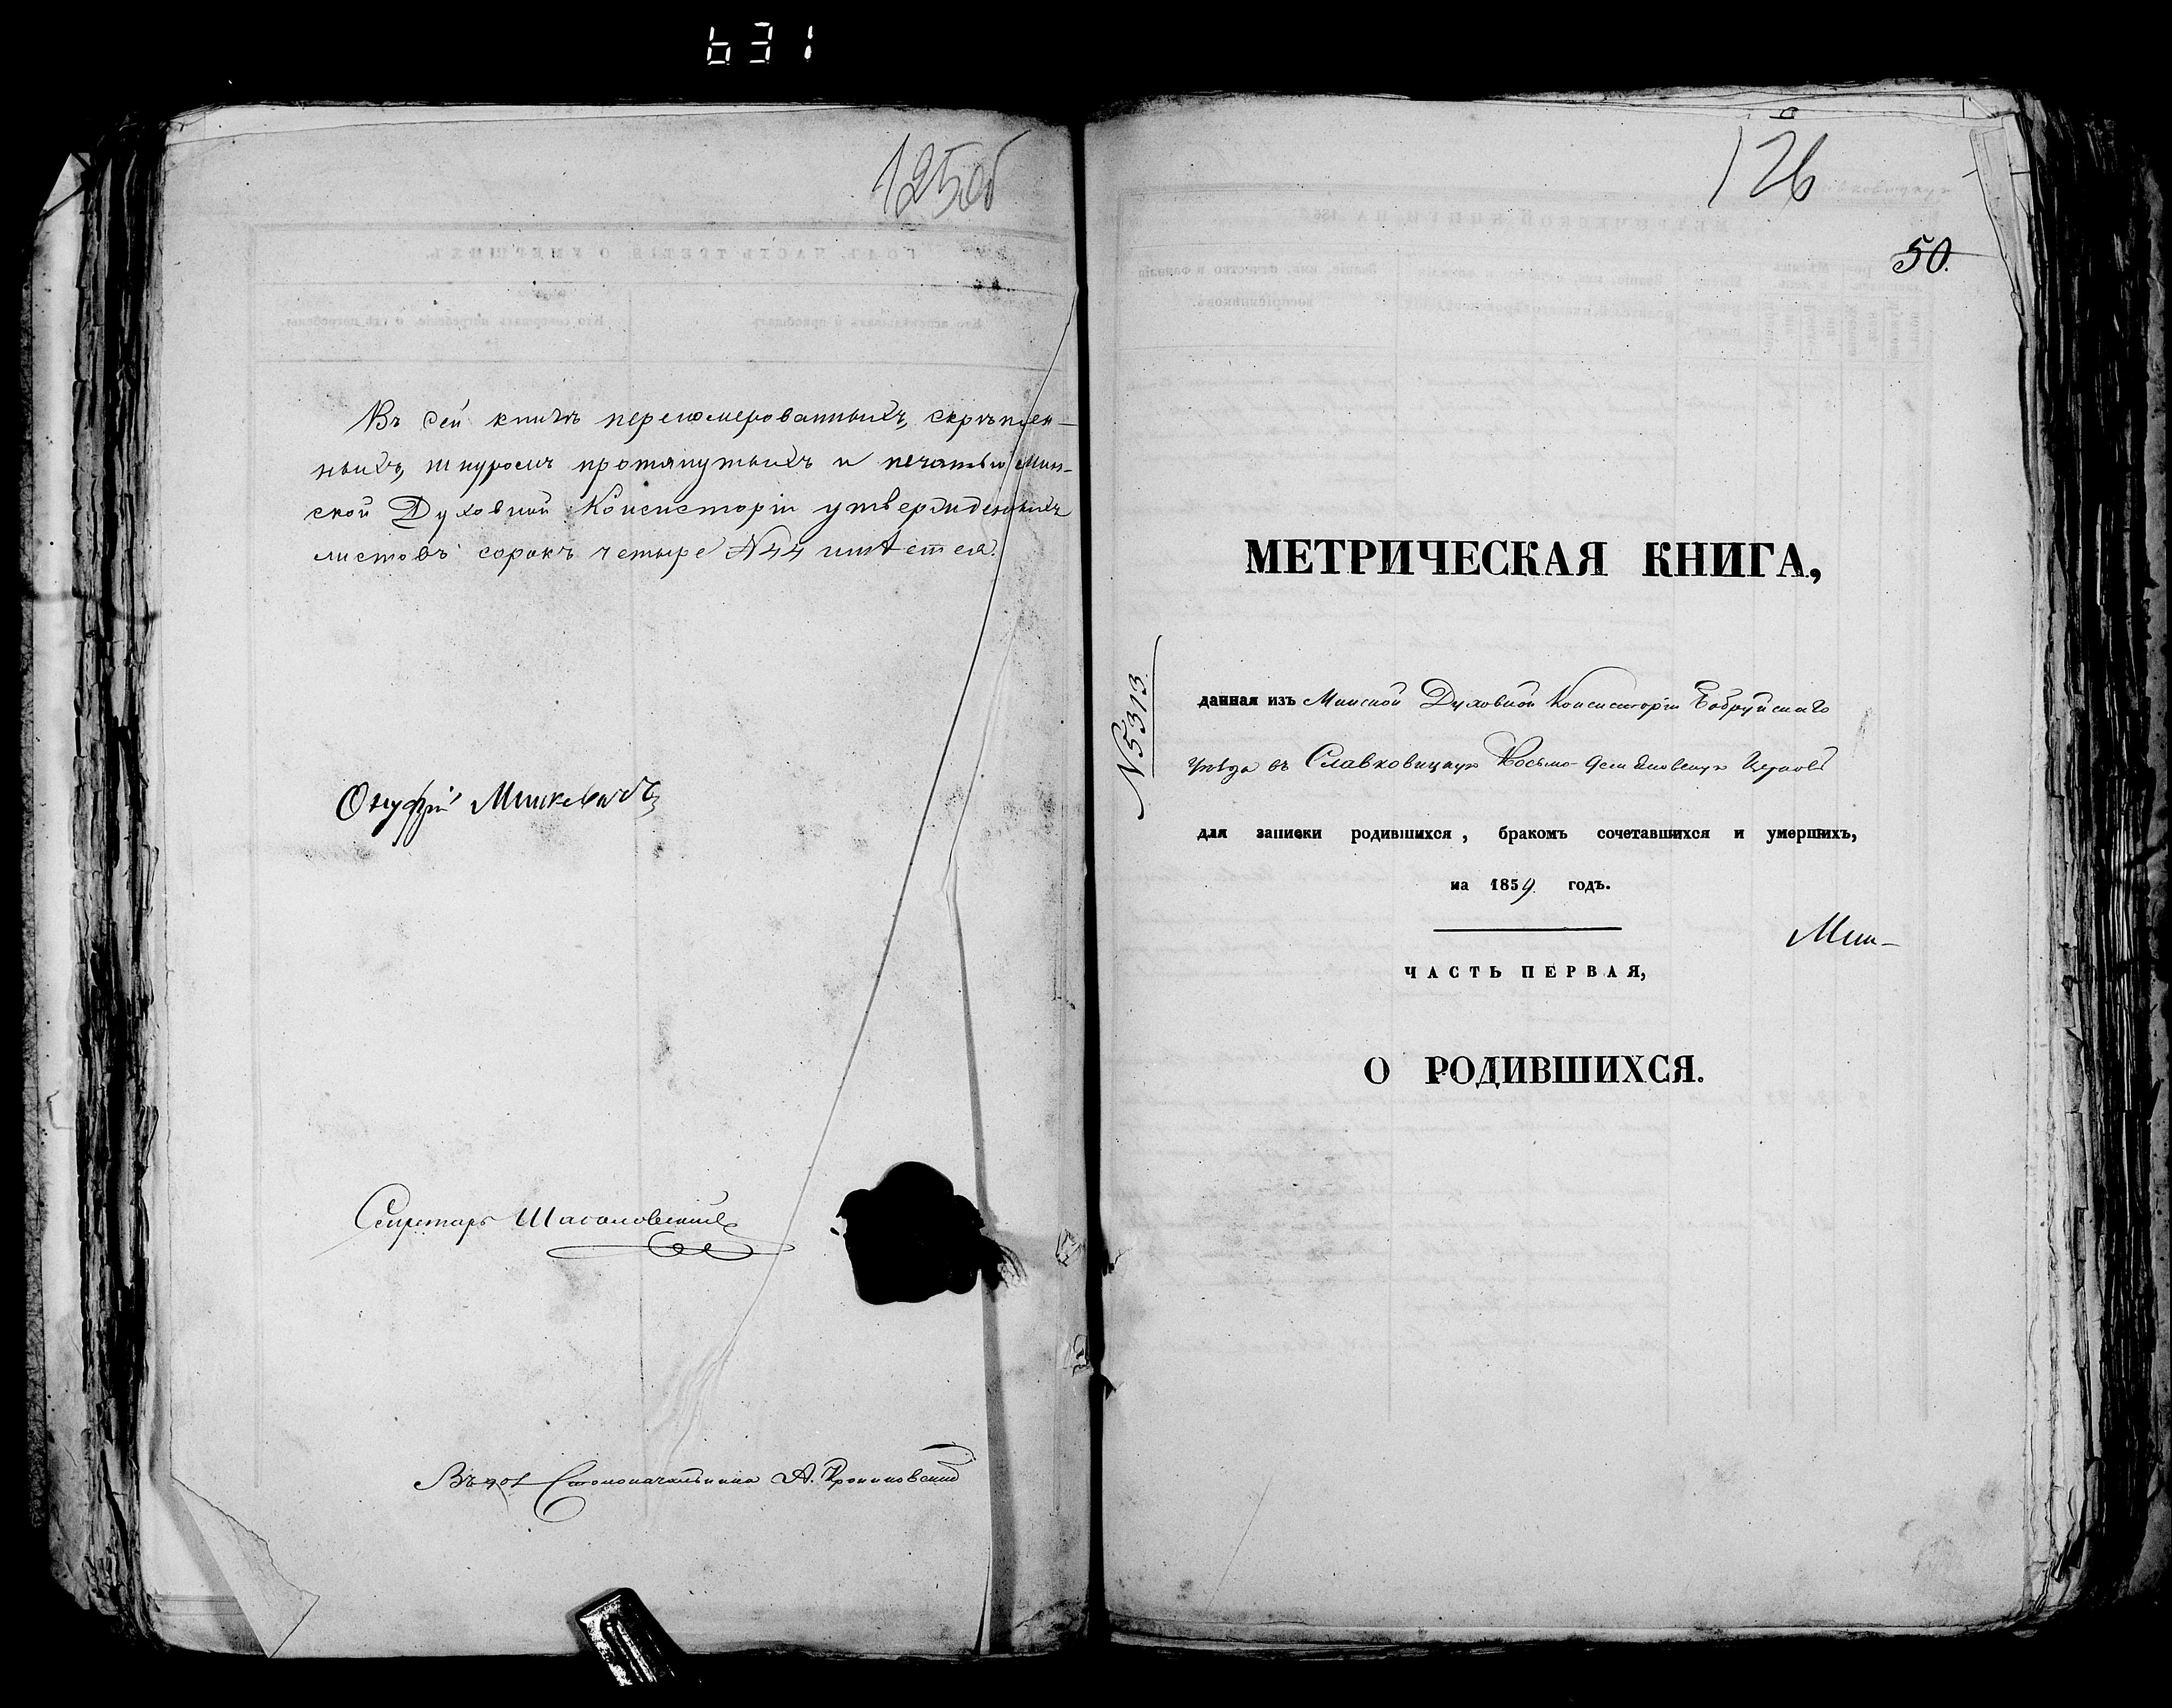 631
125об
Въ сей книгѣ перенумерованныхъ, скрѣплен-
ныхъ, шнуромъ протянутыхъ и печатью Мин-
ской Духовной Консисторіи утвержденныхъ
листовъ сорокъ четыре №44 имѣется.
Онуфрій Мицкевичъ
Секретарь
Столоначальника А.
126
50.
МЕТРИЧЕСКАЯ КНИГА,
№5313
данная изъ Минской Духовной Консисторіи Бобруйскаго
уѣзда въ Славковицкую Косьмо-Деміановскую Церковь
для записки родившихся, бракомъ сочетавшихся и умершихъ,
на 1859 годъ.
Мин-
ЧАСТЬ ПЕРВАЯ,
О РОДИВШИХСЯ.